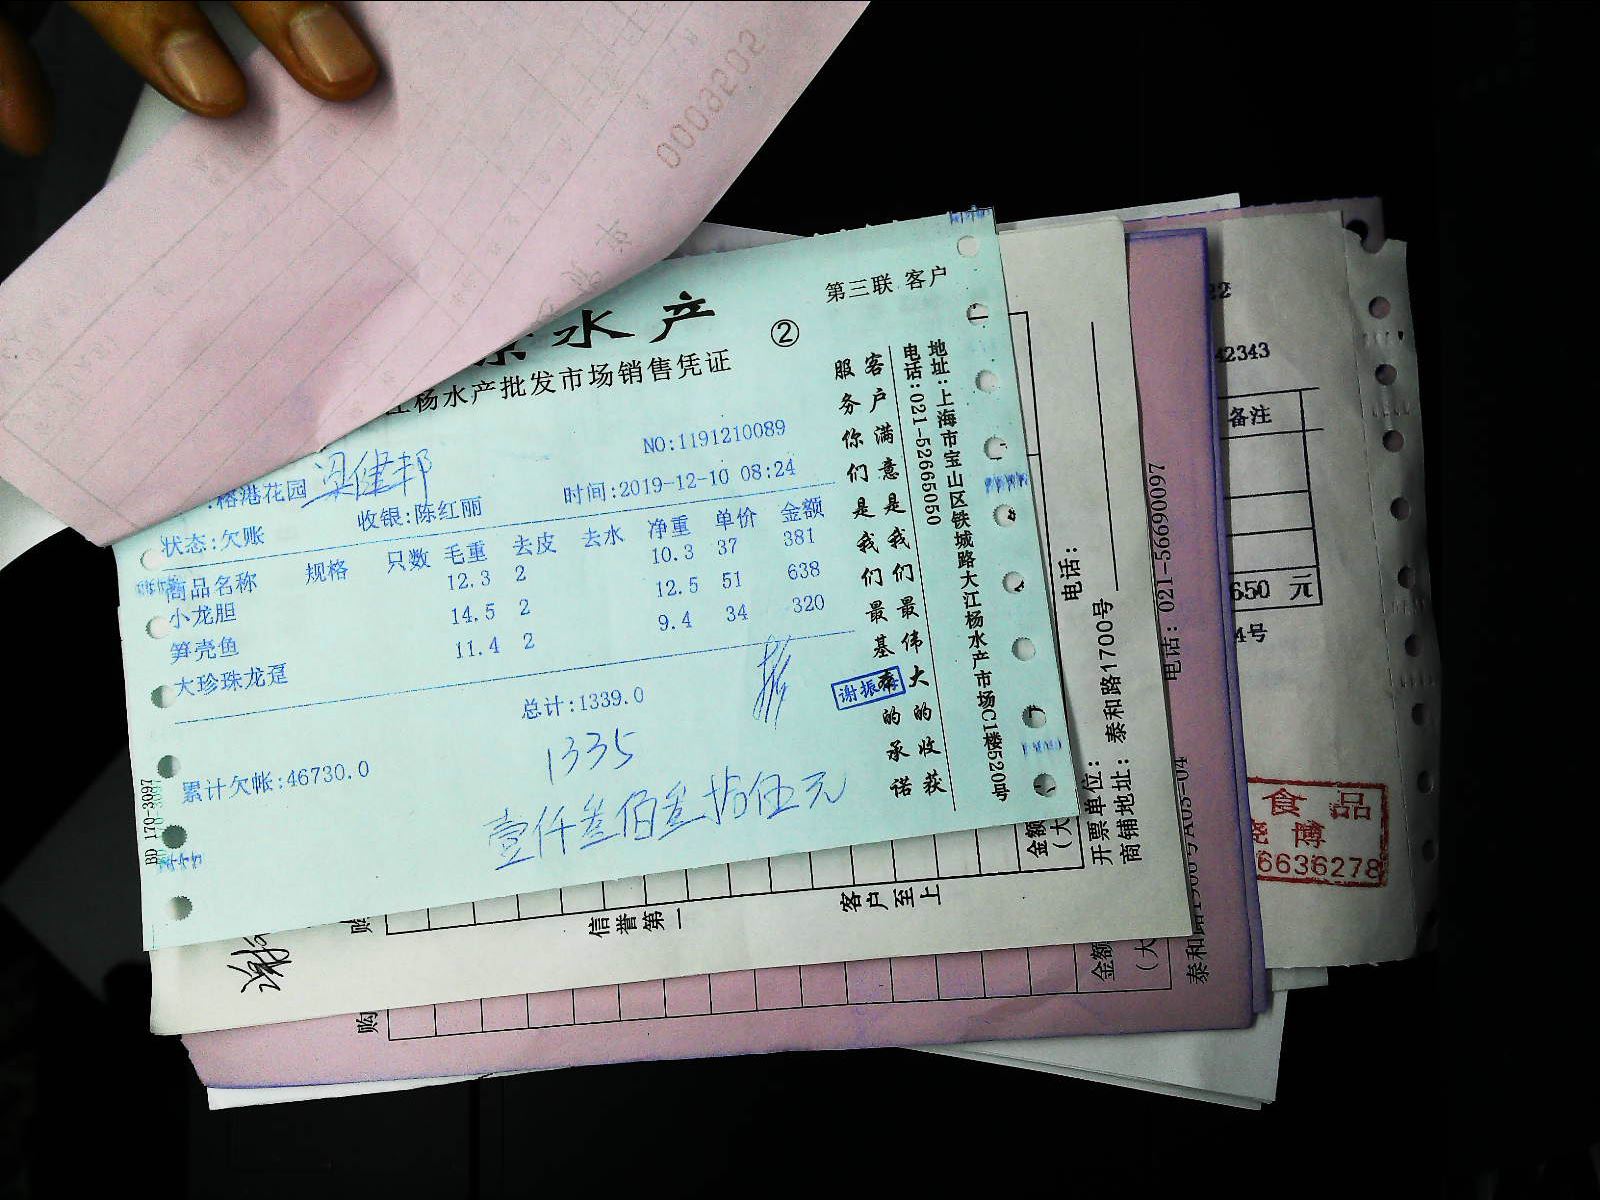 00036205
第三联 客户
水产
②
杨水产批发市场销售凭证
NO:1191210089
榕港花园 梁健邦
时间:2019-12-10 08:24
状态:欠账
收银:陈红丽
商品名称 规格 只数 毛重 去皮 去水 净重 单价 金额
小龙胆 12.3 2 10.3 37 381
笋壳鱼 14.5 2 12.5 51 638
大珍珠龙趸 11.4 2 9.4 34 320
总计:1339.0
1335
累计欠帐:46730.0
壹仟叁佰叁拾伍元
BD 170-3097
客户满意是我们最伟大的收获
服务你们是我们最基本的承诺
地址:上海市宝山区铁城路大江杨水产市场C1楼520号
电话:021-52665050
电话:
开票单位:
商铺地址: 泰和路1700号
金额
(大
信誉第一
客户至上
购
谢
电话: 021-56690097
金额
(大
购
22
42343
备注
650 元
4号
食品
6636278